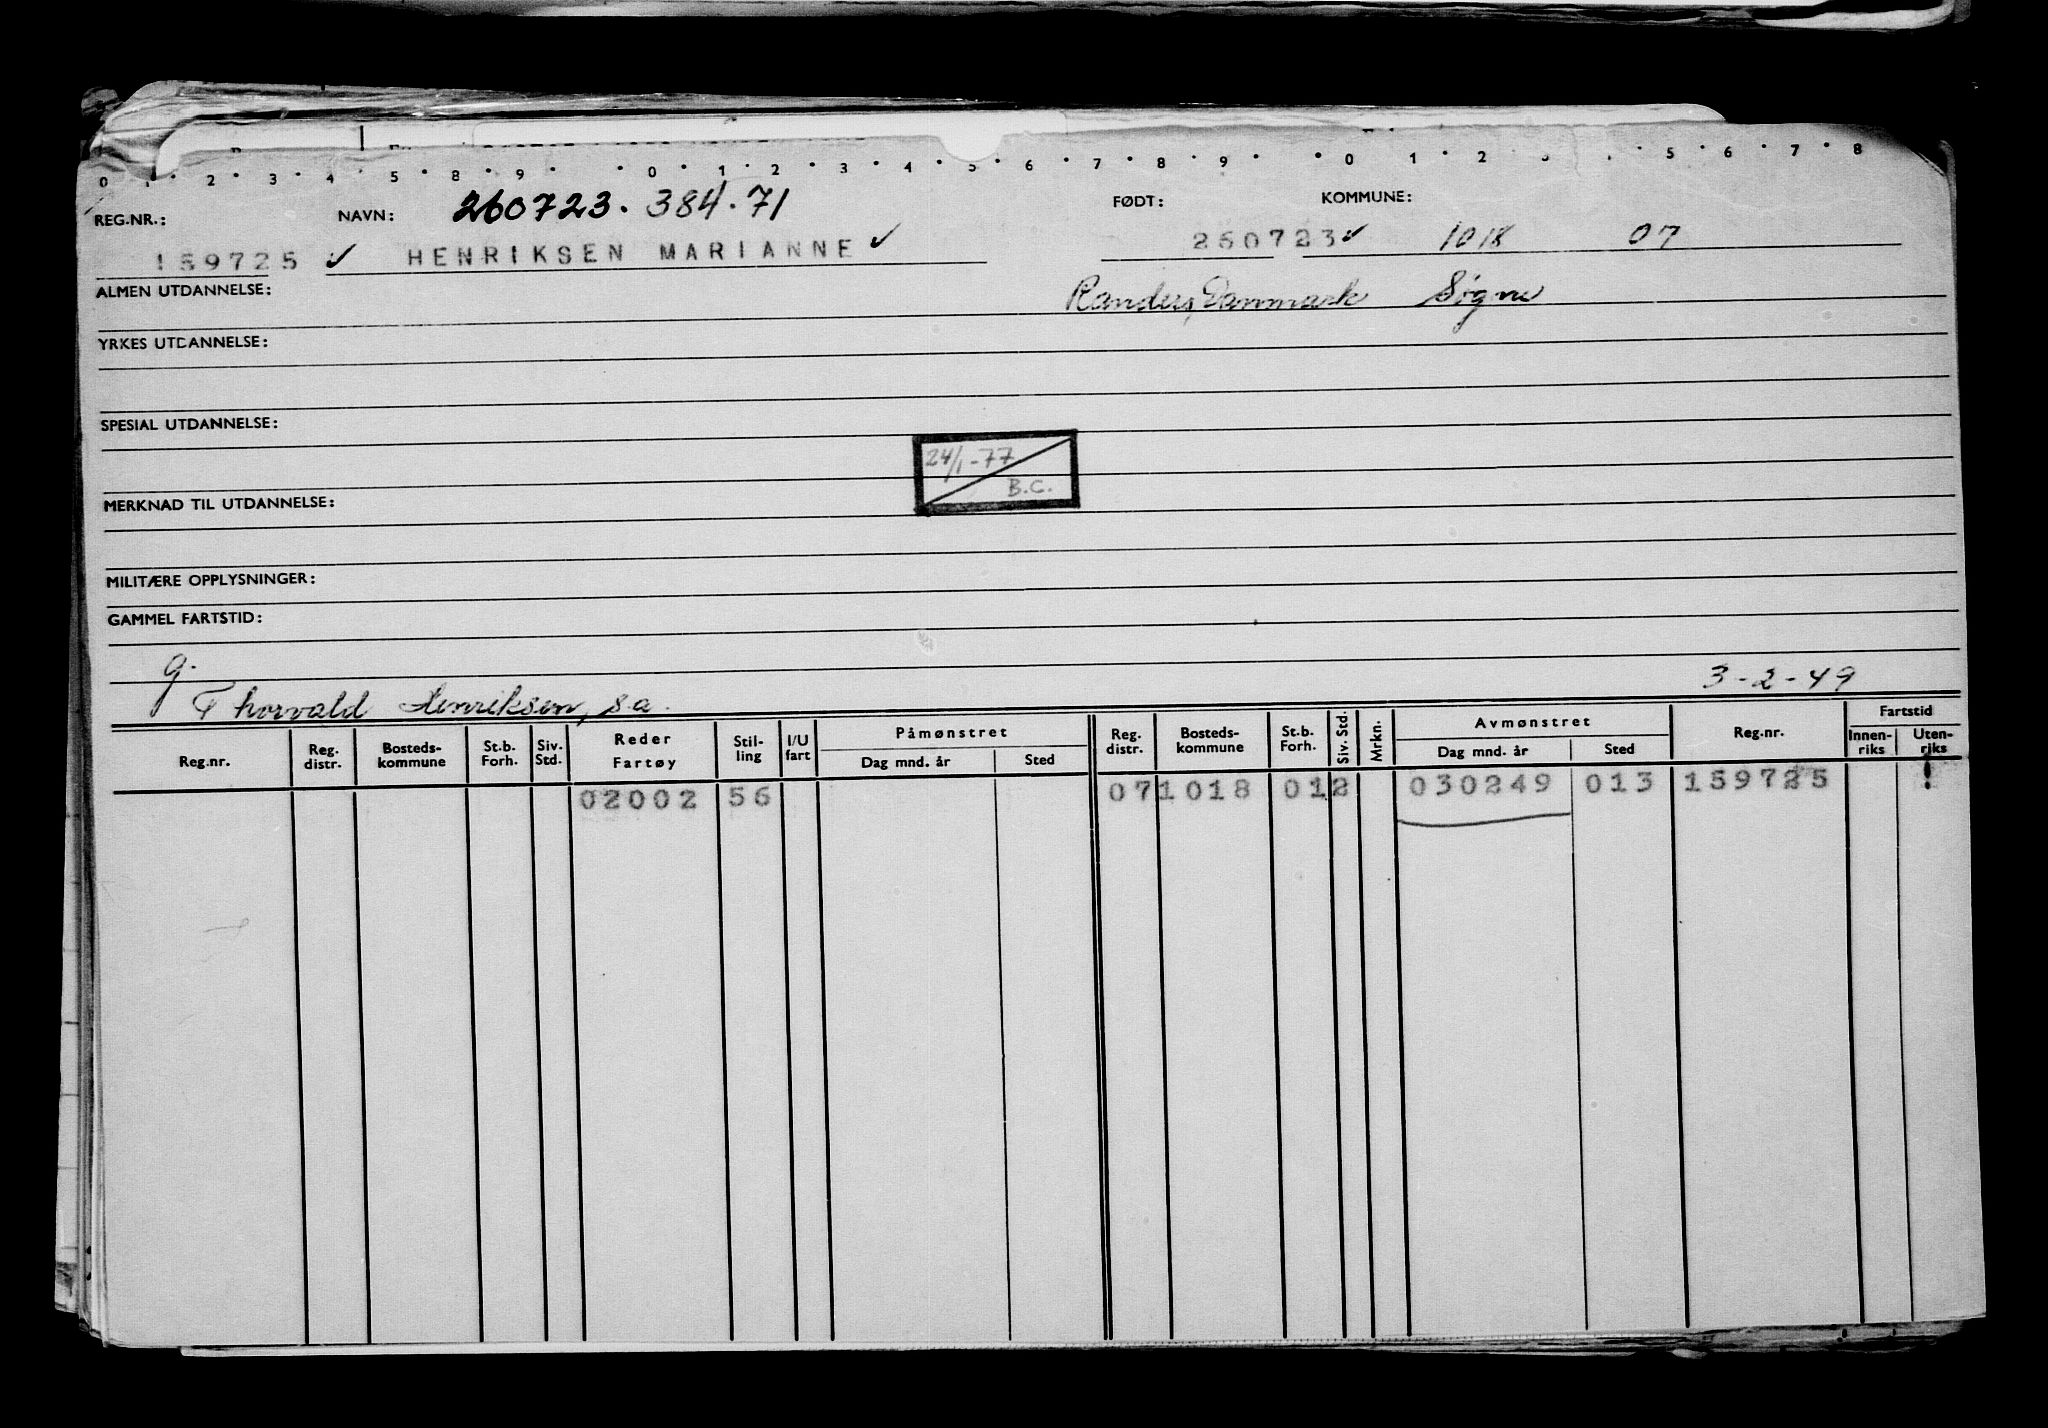 0 1 · 2 · 3 · 4 · 5 · 8 · 9 · · 0 · 1 · 2 · 3 · 4 · 5 · 6 · 7 · 8 · 9 · · 0 · 1 · 2 · 3 · 5 · 6 · 7 · 8
260723. 384.71
REG.NR.: NAVN: FØDT: KOMMUNE:
159725 ✓ HENRIKSEN MARIANNE ✓ 260723 ✓ 1018 07
ALMEN UTDANNELSE: Randers, Danmark Søgne
YRKES UTDANNELSE:
SPESIAL UTDANNELSE:
24/1-77
B.C.
MERKNAD TIL UTDANNELSE:
MILITÆRE OPPLYSNINGER:
GAMMEL FARTSTID:
g.
Thorvald Henriksen, s.a. 3-2-49
Reg.nr. Reg. distr. Bosteds-kommune St.b. Forh. Siv. Std. Reder Fartøy Stil-ling I/U fart Påmønstret Dag mnd. år Sted Reg. distr. Bosteds-kommune St.b. Forh. Siv. Std. Mrkn. Avmønstret Dag mnd. år Sted Reg.nr. Fartstid Innen-riks Uten-riks
02002 56 07 1018 01 2 030249 013 159725